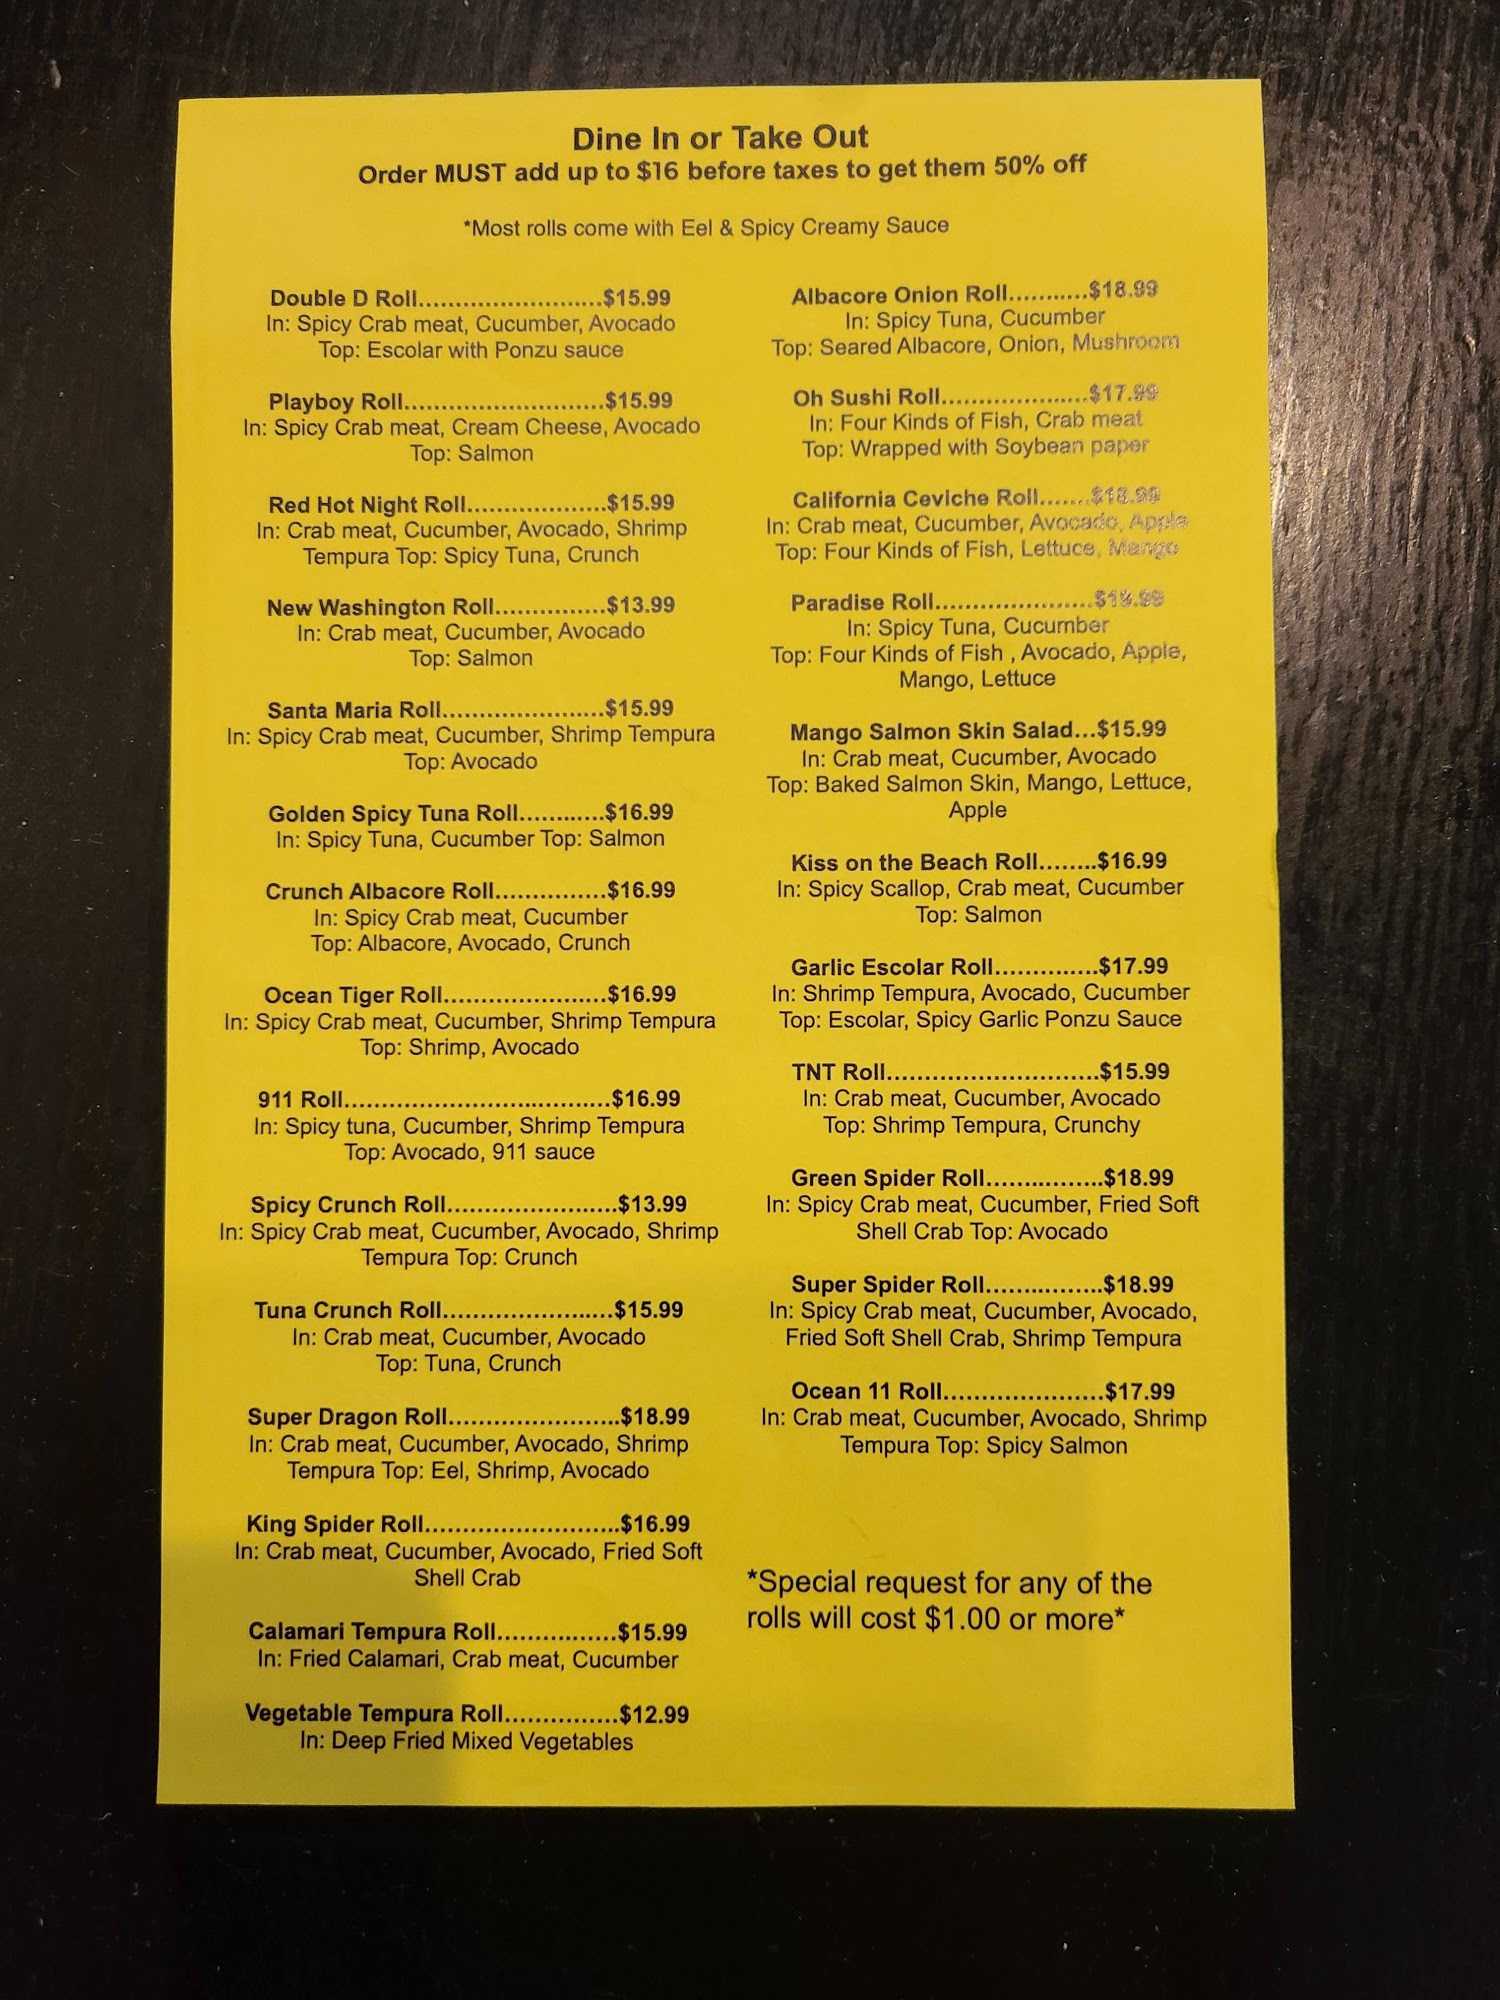 Dine In or Take Out
Order MUST add up to $16 before taxes to get them 50% off
*Most rolls come with Eel & Spicy Creamy Sauce
Double D Roll.........................$15.99
In: Spicy Crab meat, Cucumber, Avocado
Top: Escolar with Ponzu sauce
Playboy Roll...........................$15.99
In: Spicy Crab meat, Cream Cheese, Avocado
Top: Salmon
Red Hot Night Roll...................$15.99
In: Crab meat, Cucumber, Avocado, Shrimp
Tempura Top: Spicy Tuna, Crunch
New Washington Roll...............$13.99
In: Crab meat, Cucumber, Avocado
Top: Salmon
Santa Maria Roll......................$15.99
In: Spicy Crab meat, Cucumber, Shrimp Tempura
Top: Avocado
Golden Spicy Tuna Roll...........$16.99
In: Spicy Tuna, Cucumber Top: Salmon
Crunch Albacore Roll...............$16.99
In: Spicy Crab meat, Cucumber
Top: Albacore, Avocado, Crunch
Ocean Tiger Roll......................$16.99
In: Spicy Crab meat, Cucumber, Shrimp Tempura
Top: Shrimp, Avocado
911 Roll....................................$16.99
In: Spicy tuna, Cucumber, Shrimp Tempura
Top: Avocado, 911 sauce
Spicy Crunch Roll.......................$13.99
In: Spicy Crab meat, Cucumber, Avocado, Shrimp
Tempura Top: Crunch
Tuna Crunch Roll.......................$15.99
In: Crab meat, Cucumber, Avocado
Top: Tuna, Crunch
Super Dragon Roll.......................$18.99
In: Crab meat, Cucumber, Avocado, Shrimp
Tempura Top: Eel, Shrimp, Avocado
King Spider Roll..........................$16.99
In: Crab meat, Cucumber, Avocado, Fried Soft
Shell Crab
Calamari Tempura Roll................$15.99
In: Fried Calamari, Crab meat, Cucumber
Vegetable Tempura Roll...............$12.99
In: Deep Fried Mixed Vegetables
Albacore Onion Roll...........$18.99
In: Spicy Tuna, Cucumber
Top: Seared Albacore, Onion, Mushroom
Oh Sushi Roll....................$17.99
In: Four Kinds of Fish, Crab meat
Top: Wrapped with Soybean paper
California Ceviche Roll.......$18.99
In: Crab meat, Cucumber, Avocado, Apple
Top: Four Kinds of Fish, Lettuce, Mango
Paradise Roll.....................$19.99
In: Spicy Tuna, Cucumber
Top: Four Kinds of Fish , Avocado, Apple,
Mango, Lettuce
Mango Salmon Skin Salad...$15.99
In: Crab meat, Cucumber, Avocado
Top: Baked Salmon Skin, Mango, Lettuce,
Apple
Kiss on the Beach Roll........$16.99
In: Spicy Scallop, Crab meat, Cucumber
Top: Salmon
Garlic Escolar Roll..............$17.99
In: Shrimp Tempura, Avocado, Cucumber
Top: Escolar, Spicy Garlic Ponzu Sauce
TNT Roll............................$15.99
In: Crab meat, Cucumber, Avocado
Top: Shrimp Tempura, Crunchy
Green Spider Roll................$18.99
In: Spicy Crab meat, Cucumber, Fried Soft
Shell Crab Top: Avocado
Super Spider Roll................$18.99
In: Spicy Crab meat, Cucumber, Avocado,
Fried Soft Shell Crab, Shrimp Tempura
Ocean 11 Roll.....................$17.99
In: Crab meat, Cucumber, Avocado, Shrimp
Tempura Top: Spicy Salmon
*Special request for any of the
rolls will cost $1.00 or more*